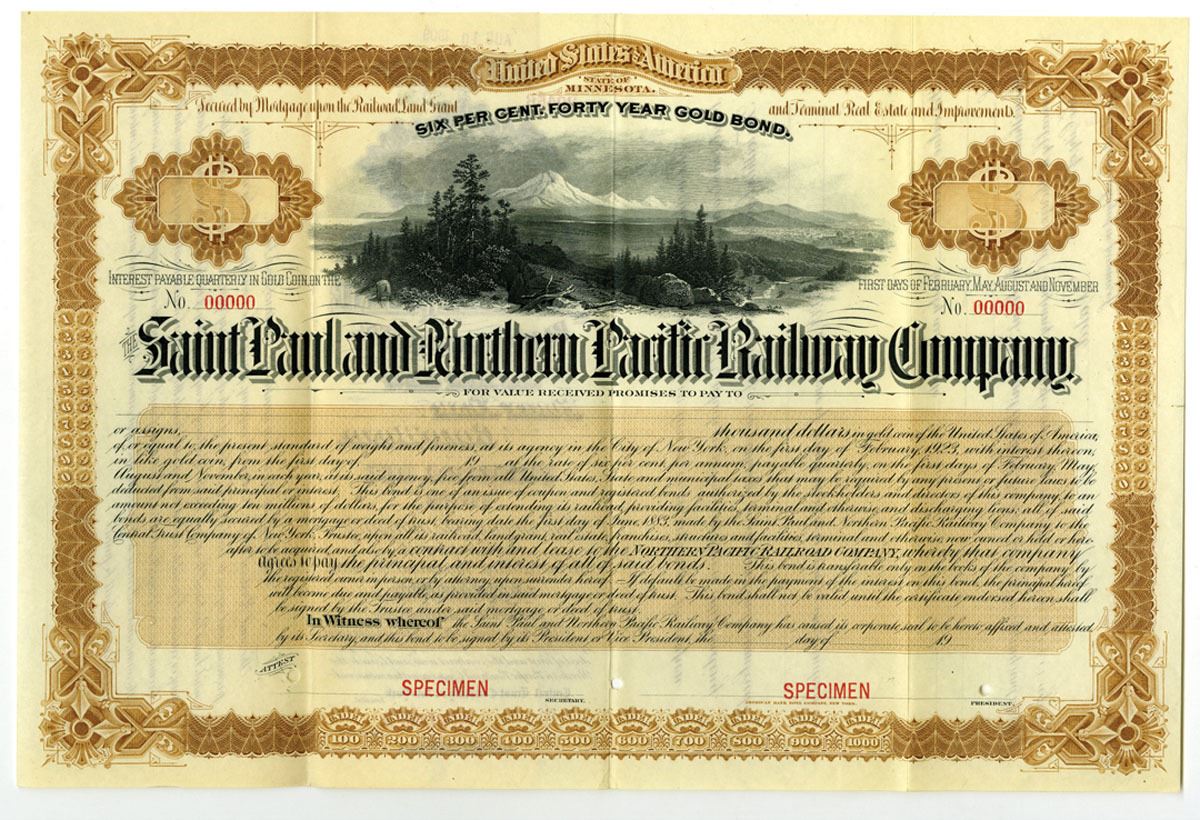 United States of America
STATE OF
MINNESOTA.
Secured by Mortgage upon the Railroad, Land Grant and Terminal Real Estate and Improvements.
SIX PER CENT. FORTY YEAR GOLD BOND.
$ $
INTEREST PAYABLE QUARTERLY IN GOLD COIN, ON THE FIRST DAYS OF FEBRUARY, MAY, AUGUST AND NOVEMBER
No. 00000 No. 00000
THE Saint Paul and Northern Pacific Railway Company,
FOR VALUE RECEIVED PROMISES TO PAY TO
or assigns, thousand dollars in gold coin of the United States of America,
of, or equal to the present standard of weight and fineness, at its agency in the City of New York, on the first day of February, 1923, with interest thereon,
in like gold coin, from the first day of 19 at the rate of six per cent. per annum, payable quarterly, on the first days of February, May,
August and November, in each year, at its said agency, free from all United States, State and municipal taxes that may be required by any present or future laws to be
deducted from said principal or interest. This bond is one of an issue of coupon and registered bonds authorized by the stockholders and directors of this company, to an
amount not exceeding ten millions of dollars, for the purpose of extending its railroad, providing facilities, terminal and otherwise, and discharging liens; all of said
bonds are equally secured by a mortgage or deed of trust, bearing date the first day of June, 1883, made by the Saint Paul and Northern Pacific Railway Company to the
Central Trust Company of New York, Trustee, upon all its railroad, land grant, real estate, franchises, structures and facilities, terminal and otherwise, now owned or held or here-
after to be acquired, and also by a contract with and lease to the NORTHERN PACIFIC RAILROAD COMPANY, whereby that company
agrees to pay the principal and interest of all of said bonds. This bond is transferable only on the books of the company by
the registered owner in person, or by attorney, upon surrender hereof. If default be made in the payment of the interest on this bond, the principal hereof
will become due and payable, as provided in said mortgage or deed of trust. This bond shall not be valid until the certificate endorsed hereon shall
be signed by the Trustee under said mortgage, or deed of trust.
In Witness whereof the Saint Paul and Northern Pacific Railway Company has caused its corporate seal to be hereto affixed and attested,
by its Secretary, and this bond to be signed by its President or Vice President, the day of 19
ATTEST
SPECIMEN SPECIMEN
SECRETARY. AMERICAN BANK NOTE COMPANY, NEW YORK. PRESIDENT.
UNDER UNDER UNDER UNDER UNDER UNDER UNDER UNDER UNDER UNDER
100 200 300 400 500 600 700 800 900 1000